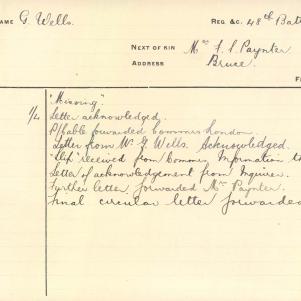 NAME G. Wells. REG. &C. 48th Batt
NEXT OF KIN Mrs F. S. Paynter
ADDRESS Bruce.
"Missing"
1/4 Letter acknowledged.
P/Cable forwarded Commrs London.
Letter from Mr G. Wells. Acknowledged.
"Slip" received from Commrs Information th
Letter of acknowledgement from Inquirer.
Further letter forwarded Mrs Paynter.
Final circular letter forwarded